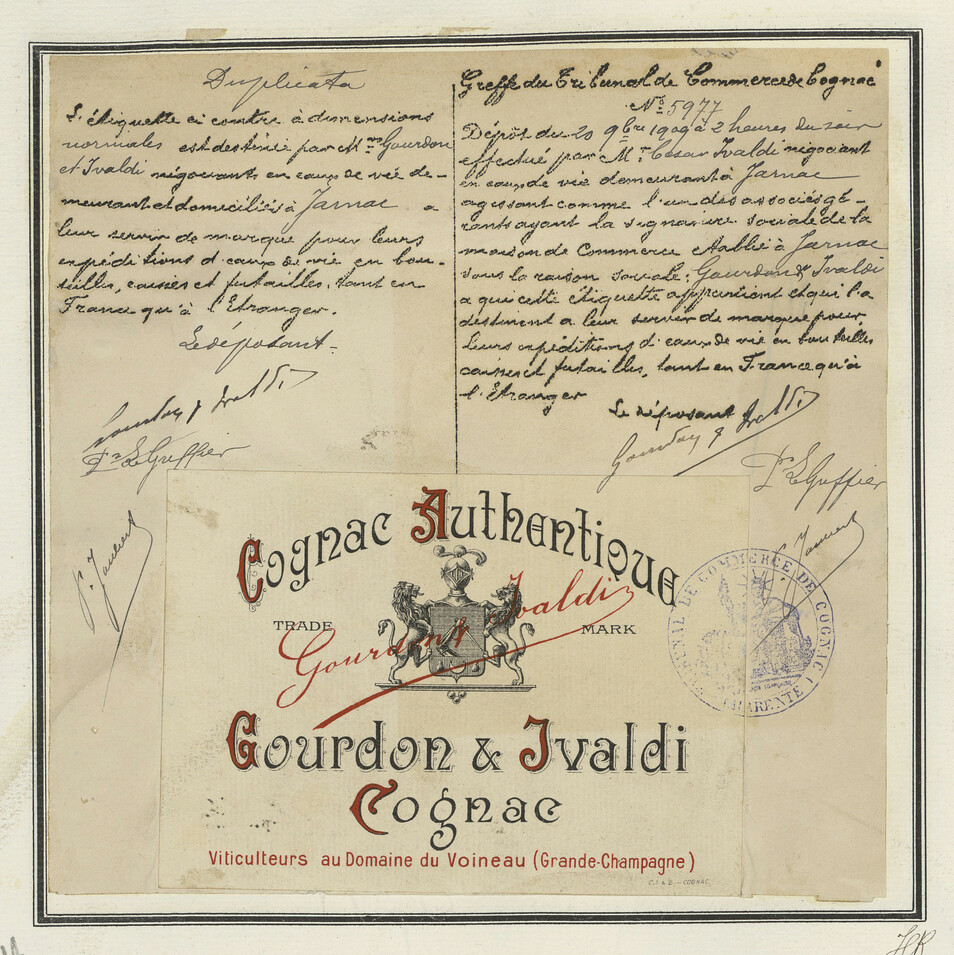 Duplicata
L'étiquette ci contre à dimensions
normales est destinée par Mrs Gourdon
et Ivaldi négociants en eaux de vie de-
meurant et domiciliés à Jarnac a
leur servir de marque pour leurs
expéditions d'eaux de vie en bou-
teilles, caisses et futailles, tant en
France qu'à l'Etranger.
Le déposant.
Gourdon & Ivaldi
Pr Le Greffier
Greffe du Tribunal de Commerce de Cognac
No 5977
Dépôt du 20 9bre 1909 à 2 heures du soir
effectué par Mr Cesar Ivaldi négociant
en eaux de vie demeurant à Jarnac
agissant comme l'un des associés gé-
rants ayant la signature sociale de la
maison de Commerce établie à Jarnac
sous la raison sociale: Gourdon & Ivaldi
a qui cette étiquette appartient et qui l'a
destinent a leur servir de marque pour
leurs expéditions d'eaux de vie en bouteilles
caisses et futailles, tant en France qu'à
l'Etranger
Le déposant
Gourdon & Ivaldi
Pr Le Greffier
Cognac Authentique
TRADE MARK
Gourdon & Ivaldi
Gourdon & Ivaldi
Cognac
Viticulteurs au Domaine du Voineau (Grande-Champagne)
TRIBUNAL DE COMMERCE DE COGNAC
(CHARENTE)